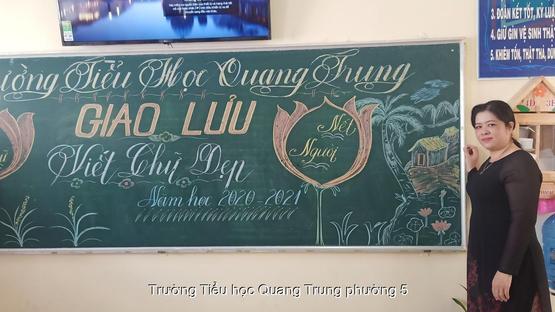 3. ĐOÀN KẾT TỐT, KỶ LU
4. GIỮ GÌN VỆ SINH THẬT
5. KHIÊM TỐN, THẬT THÀ, DŨN
ường Tiểu Học Quang Trung
GIAO LƯU
Viết Chữ Đẹp
Năm học 2020-2021
Nét
Người
Trường Tiểu học Quang Trung phường 5